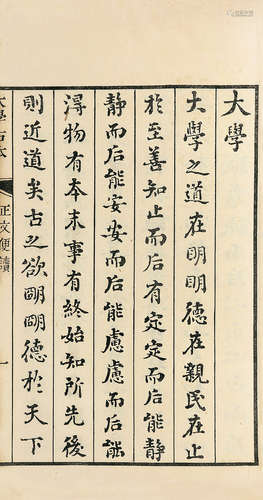 大學
大學之道在明明德在親民在止
於至善知止而后有定定而后能靜
靜而后能安安而后能慮慮而后能
得物有本末事有終始知所先後
則近道矣古之欲明明德於天下
大學古本
正文便讀
一